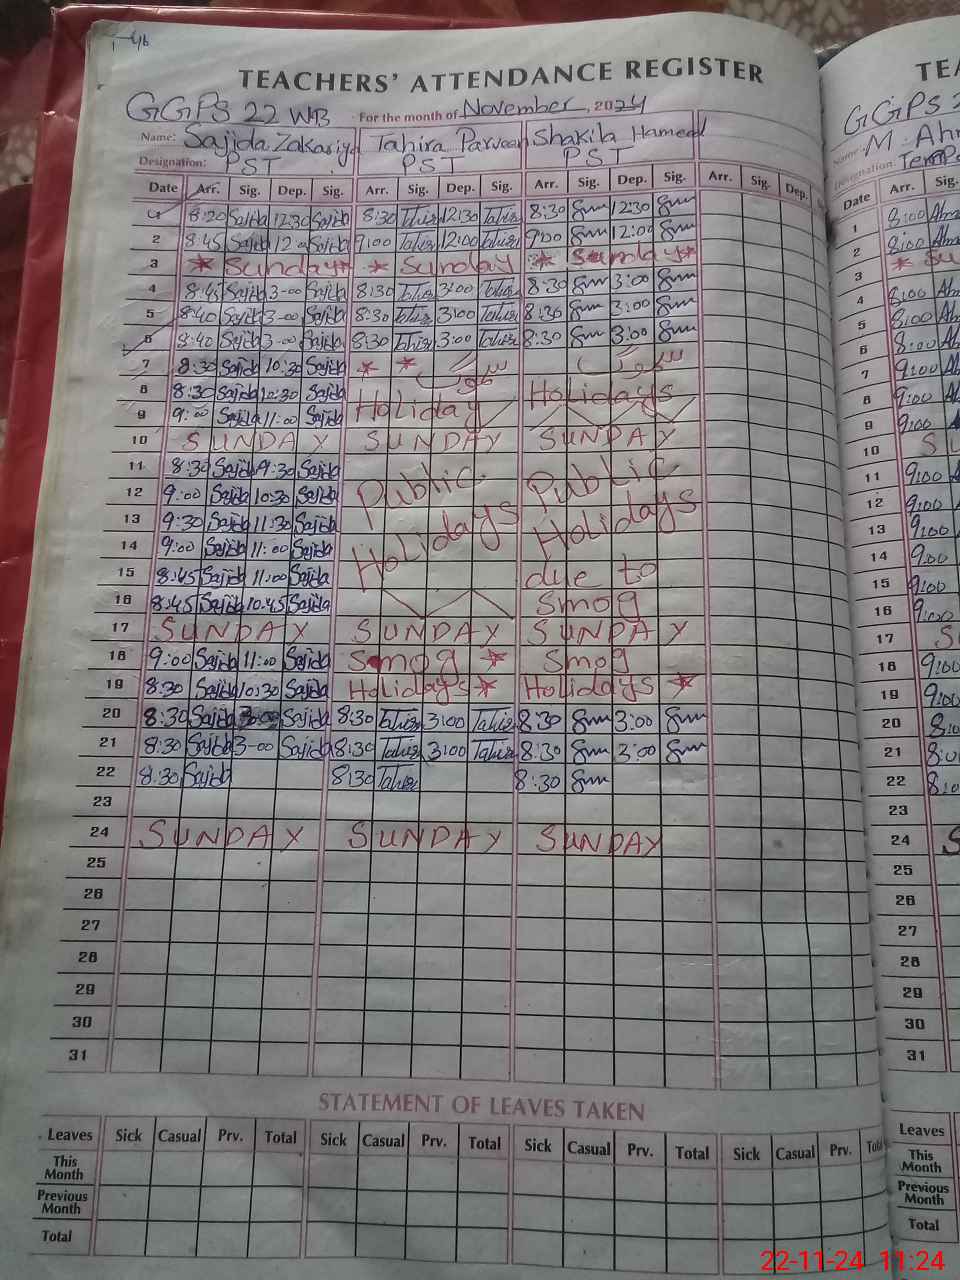 TEACHERS' ATTENDANCE REGISTER
GGPS 22 WB For the month of November, 2024
Name: Sajida Zakariya Tahira Parveen Shakila Hameed
Designation: PST PST PST
Date Arr. Sig. Dep. Sig. Arr. Sig. Dep. Sig. Arr. Sig. Dep. Sig. Arr. Sig. Dep.
8:20 Sajida 12:30 Sajida 8:30 Tahira 12:30 Tahira 8:30 12:30
2 8:45 Sajida Sajida 9:00 Tahira 12:00 Tahira 9:00 12:00
3 * Sunday * * Sunday * Sunday *
4 8:45 Sajida 3-00 Sajida 8:30 Tahira 3:00 Tahira 8:30 3:00
5 8:40 Sajida 3-00 Sajida 8:30 Tahira 3:00 Tahira 8:30 3:00
6 8:40 Sajida 3-00 Sajida 8:30 Tahira 3:00 Tahira 8:30 3:00
7 8:30 Sajida 10:30 Sajida * * سموگ سموگ
8 8:30 Sajida 10:30 Sajida Holiday Holidays
9 9:00 Sajida 11:00 Sajida
10 SUNDAY SUNDAY SUNDAY
11 8:30 Sajida 9:30 Sajida Public Public
12 9:00 Sajida 10:30 Sajida Holidays Holidays
13 9:30 Sajida 11:30 Sajida
14 9:00 Sajida 11:00 Sajida
15 8:45 Sajida 11:00 Sajida due to
16 8:45 Sajida 10:45 Sajida Smog
17 SUNDAY SUNDAY SUNDAY
18 9:00 Sajida 11:00 Sajida Smog * Smog
19 8:30 Sajida 10:30 Sajida Holidays * Holidays *
20 8:30 Sajida Sajida 8:30 Tahira 3:00 Tahira 8:30 3:00
21 8:30 Sajida 3-00 Sajida 8:30 Tahira 3:00 Tahira 8:30 3:00
22 8:30 Sajida 8:30 Tahira 8:30
23
24 SUNDAY SUNDAY SUNDAY
25
26
27
28
29
30
31
STATEMENT OF LEAVES TAKEN
Leaves Sick Casual Prv. Total Sick Casual Prv. Total Sick Casual Prv. Total Sick Casual Prv.
This Month
Previous Month
Total
GGPS
Name: M. 
Designation:
Date Arr. Sig.
1 8:00
2 8:00
3 *
4 8:00
5 8:00
6 8:00
7 9:00
8 9:00
9 9:00
10
11 9:00
12 9:00
13 9:00
14 9:00
15 9:00
16 9:00
17
18 9:00
19 9:00
20
21
22
23
24
25
26
27
28
29
30
31
Leaves
This Month
Previous Month
Total
22-11-24 11:24